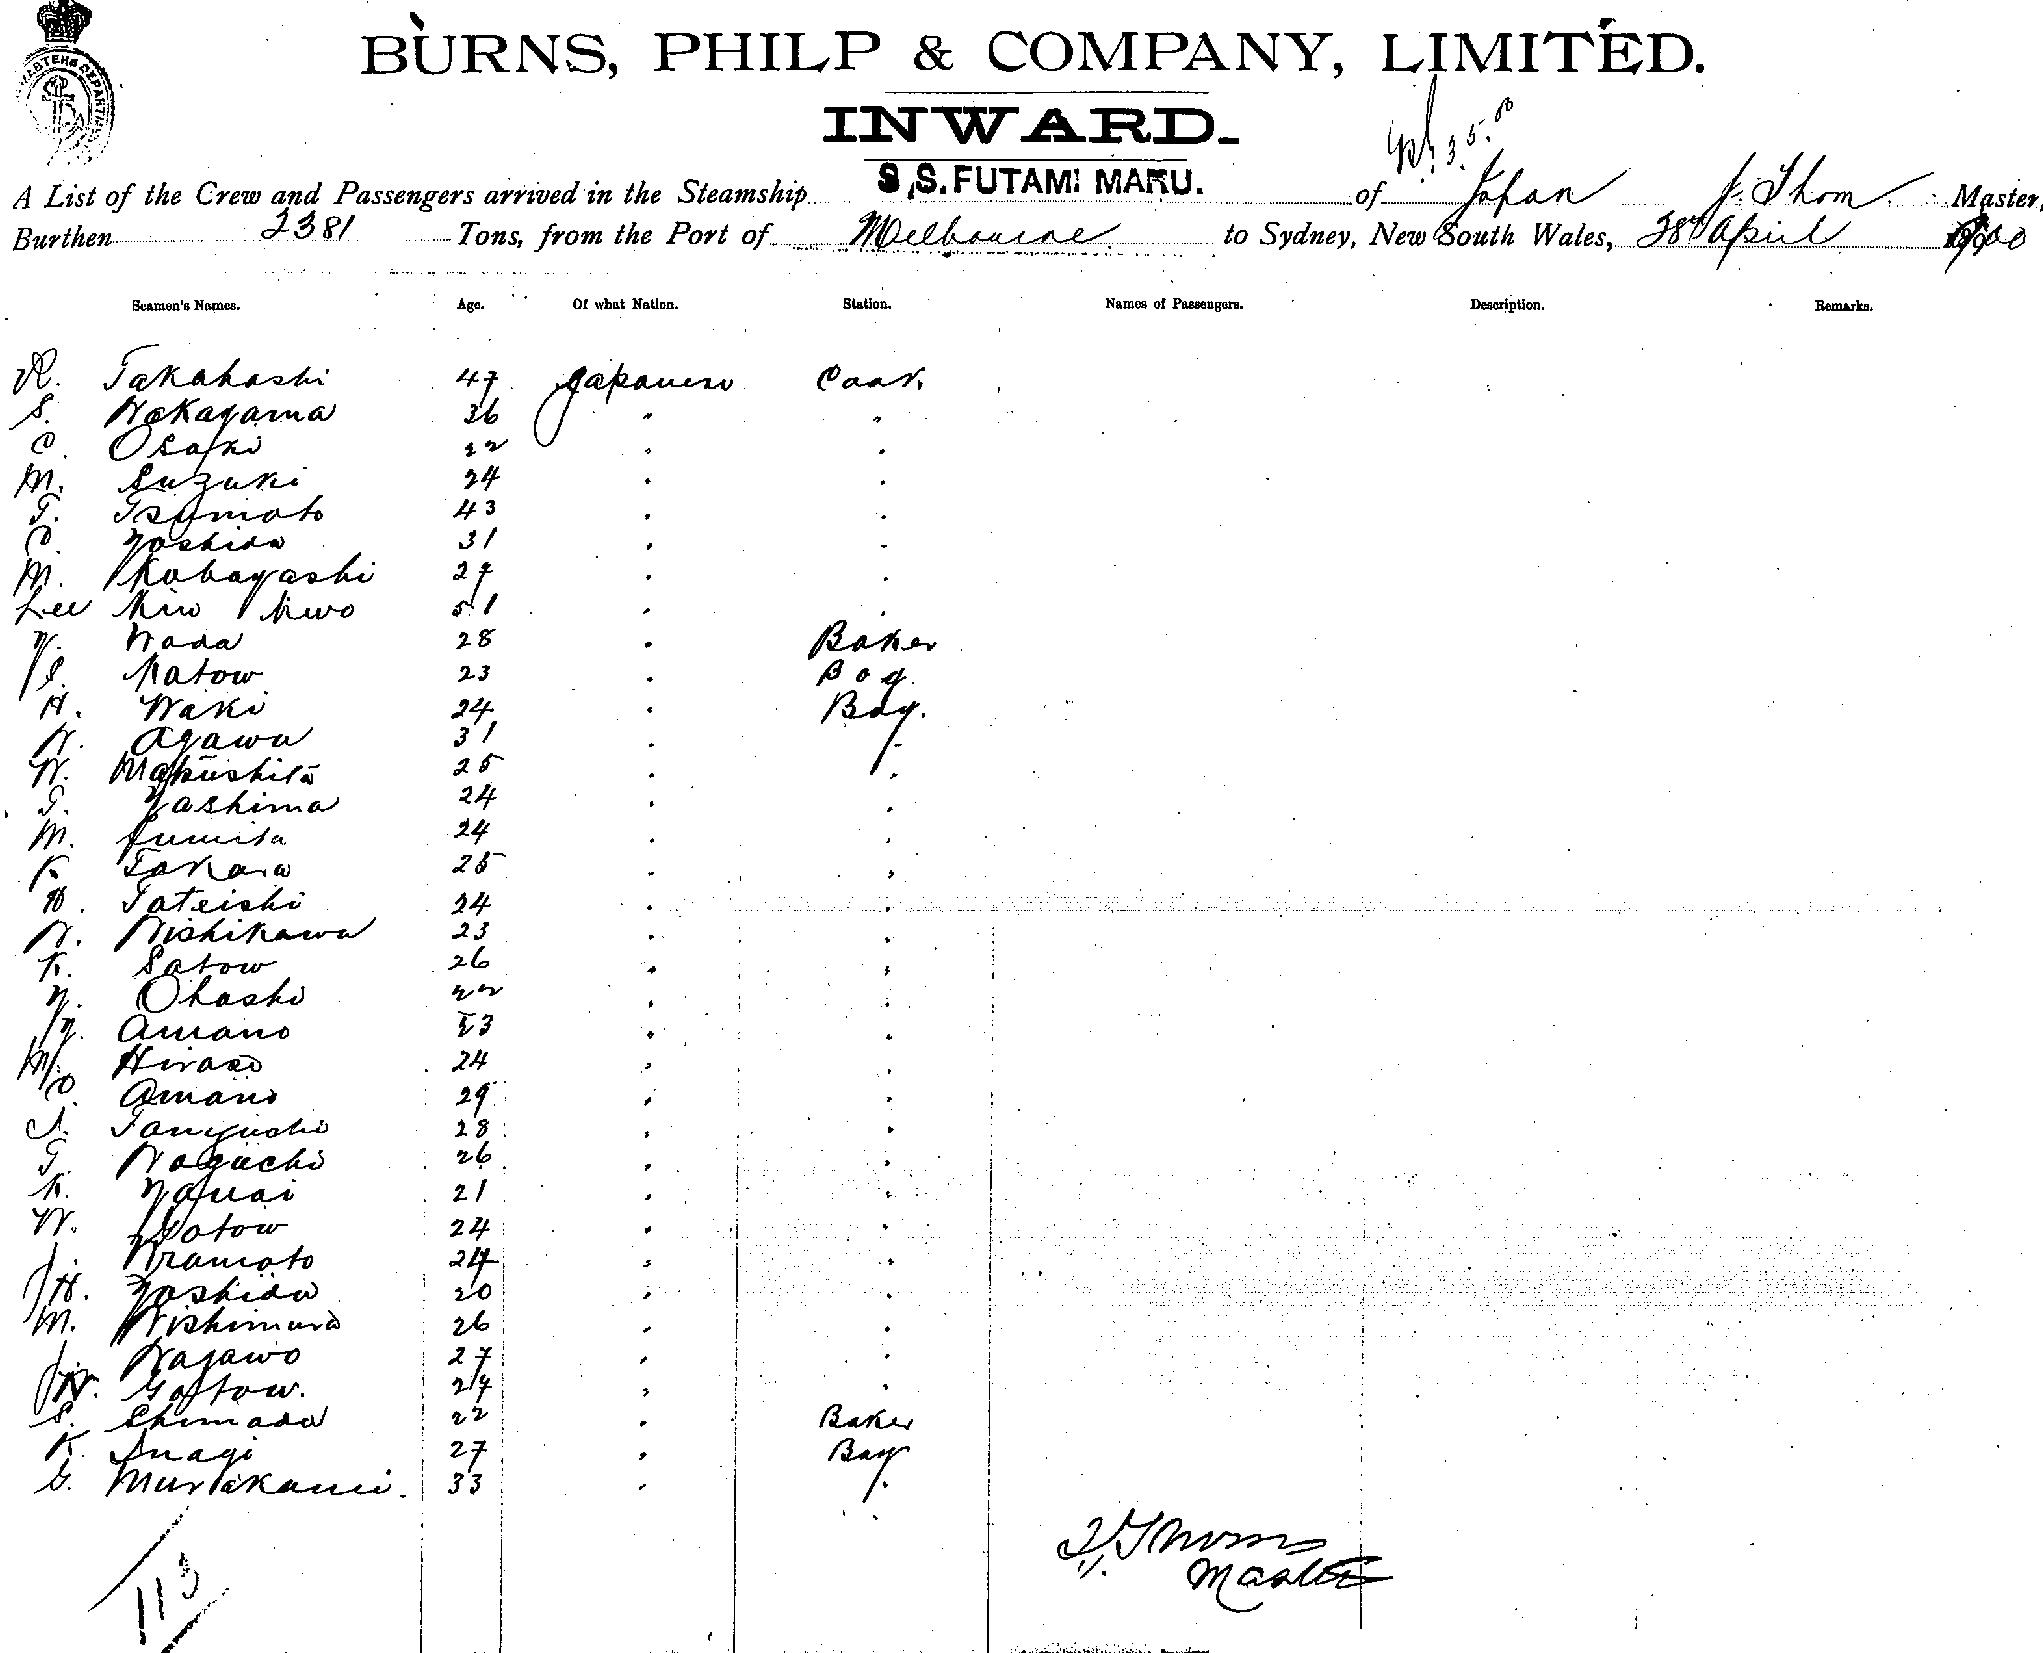 BURNS, PHILP & COMPANY, LIMITED.
INWARD.
3.5.00
A List of the Crew and Passengers arrived in the Steamship S.S. FUTAMI MARU. of Japan J. Thom Master,
Burthen 2381 Tons, from the Port of Melbourne to Sydney, New South Wales, 28 April 1900
Seamen's Names. Age. Of what Nation. Station. Names of Passengers. Description. Remarks.
R. Takahashi 47 Japanese Cook
S. Nakayama 36 " "
O. Osaki 22 " "
M. Suzuki 24 " "
T. Tsumoto 43 " "
O. Yoshida 31 " "
M. Kobayashi 27 " "
Lee Kiu Kwo 51 " "
Y. Wada 28 " Baker
S. Katow 23 " Boy
H. Waki 24 " Boy.
N. Ogawa 31 " "
N. Makushita 25 " "
T. Yashima 24 " "
M. Fumita 24 " "
K. Takara 25 " "
H. Tateishi 24 " "
N. Nishikawa 23 " "
K. Satow 26 " "
Y. Ohashi 22 " "
Y. Amano 23 " "
M. Hirase 24 " "
O. Amano 29 " "
Taniguchi 28 " "
T. Noguchi 26 " "
K. Yanai 21 " "
N. Gotow 24 " "
J. 24 " "
H. Yoshida 20 " "
M. Nishimura 26 " "
J. Nagawo 27 " "
N. Gotow. 27 " "
S. Shimada 22 " Baker
K. Inagi 27 " Boy
G. Murakami. 33 " "
J. Thom
Master
113